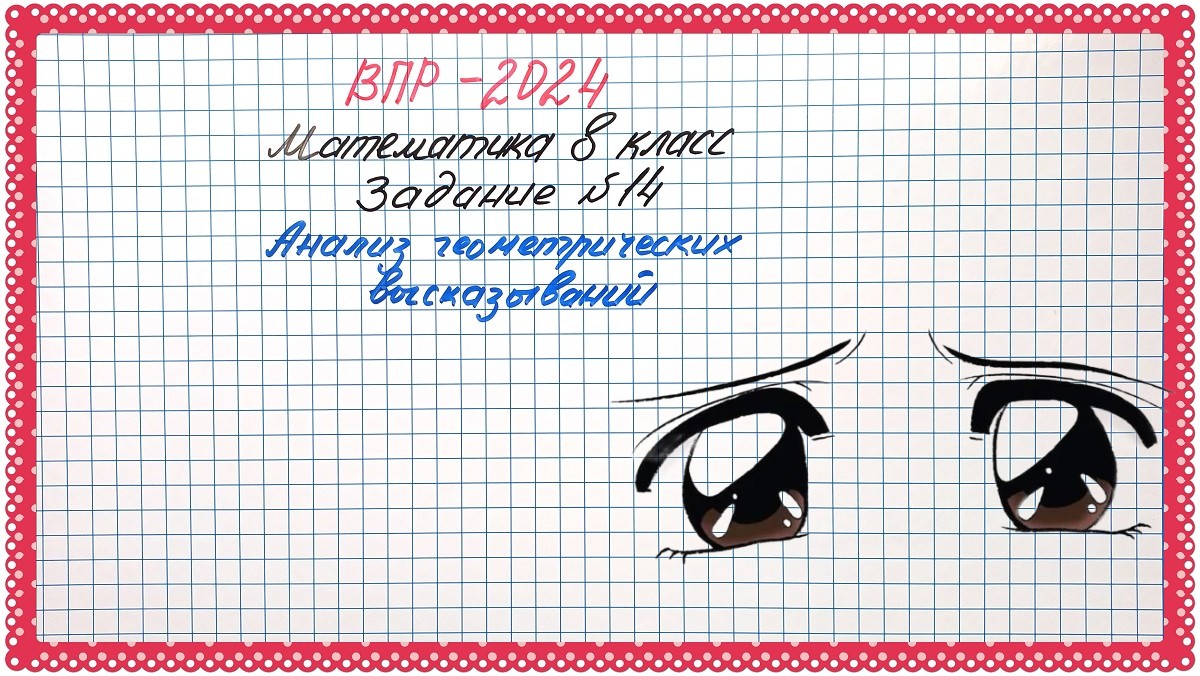 ВПР - 2024
Математика 8 класс
Задание №14
Анализ геометрических
высказываний